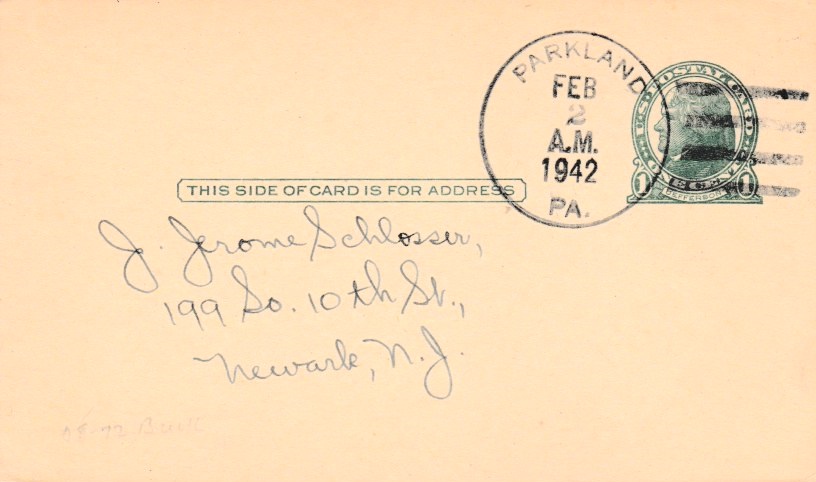 PARKLAND
FEB
2
A.M.
1942
PA.
U.S. POSTAL CARD
1 CENT 1
JEFFERSON
THIS SIDE OF CARD IS FOR ADDRESS
J. Jerome Schlosser,
199 So. 10th St.,
Newark, N.J.